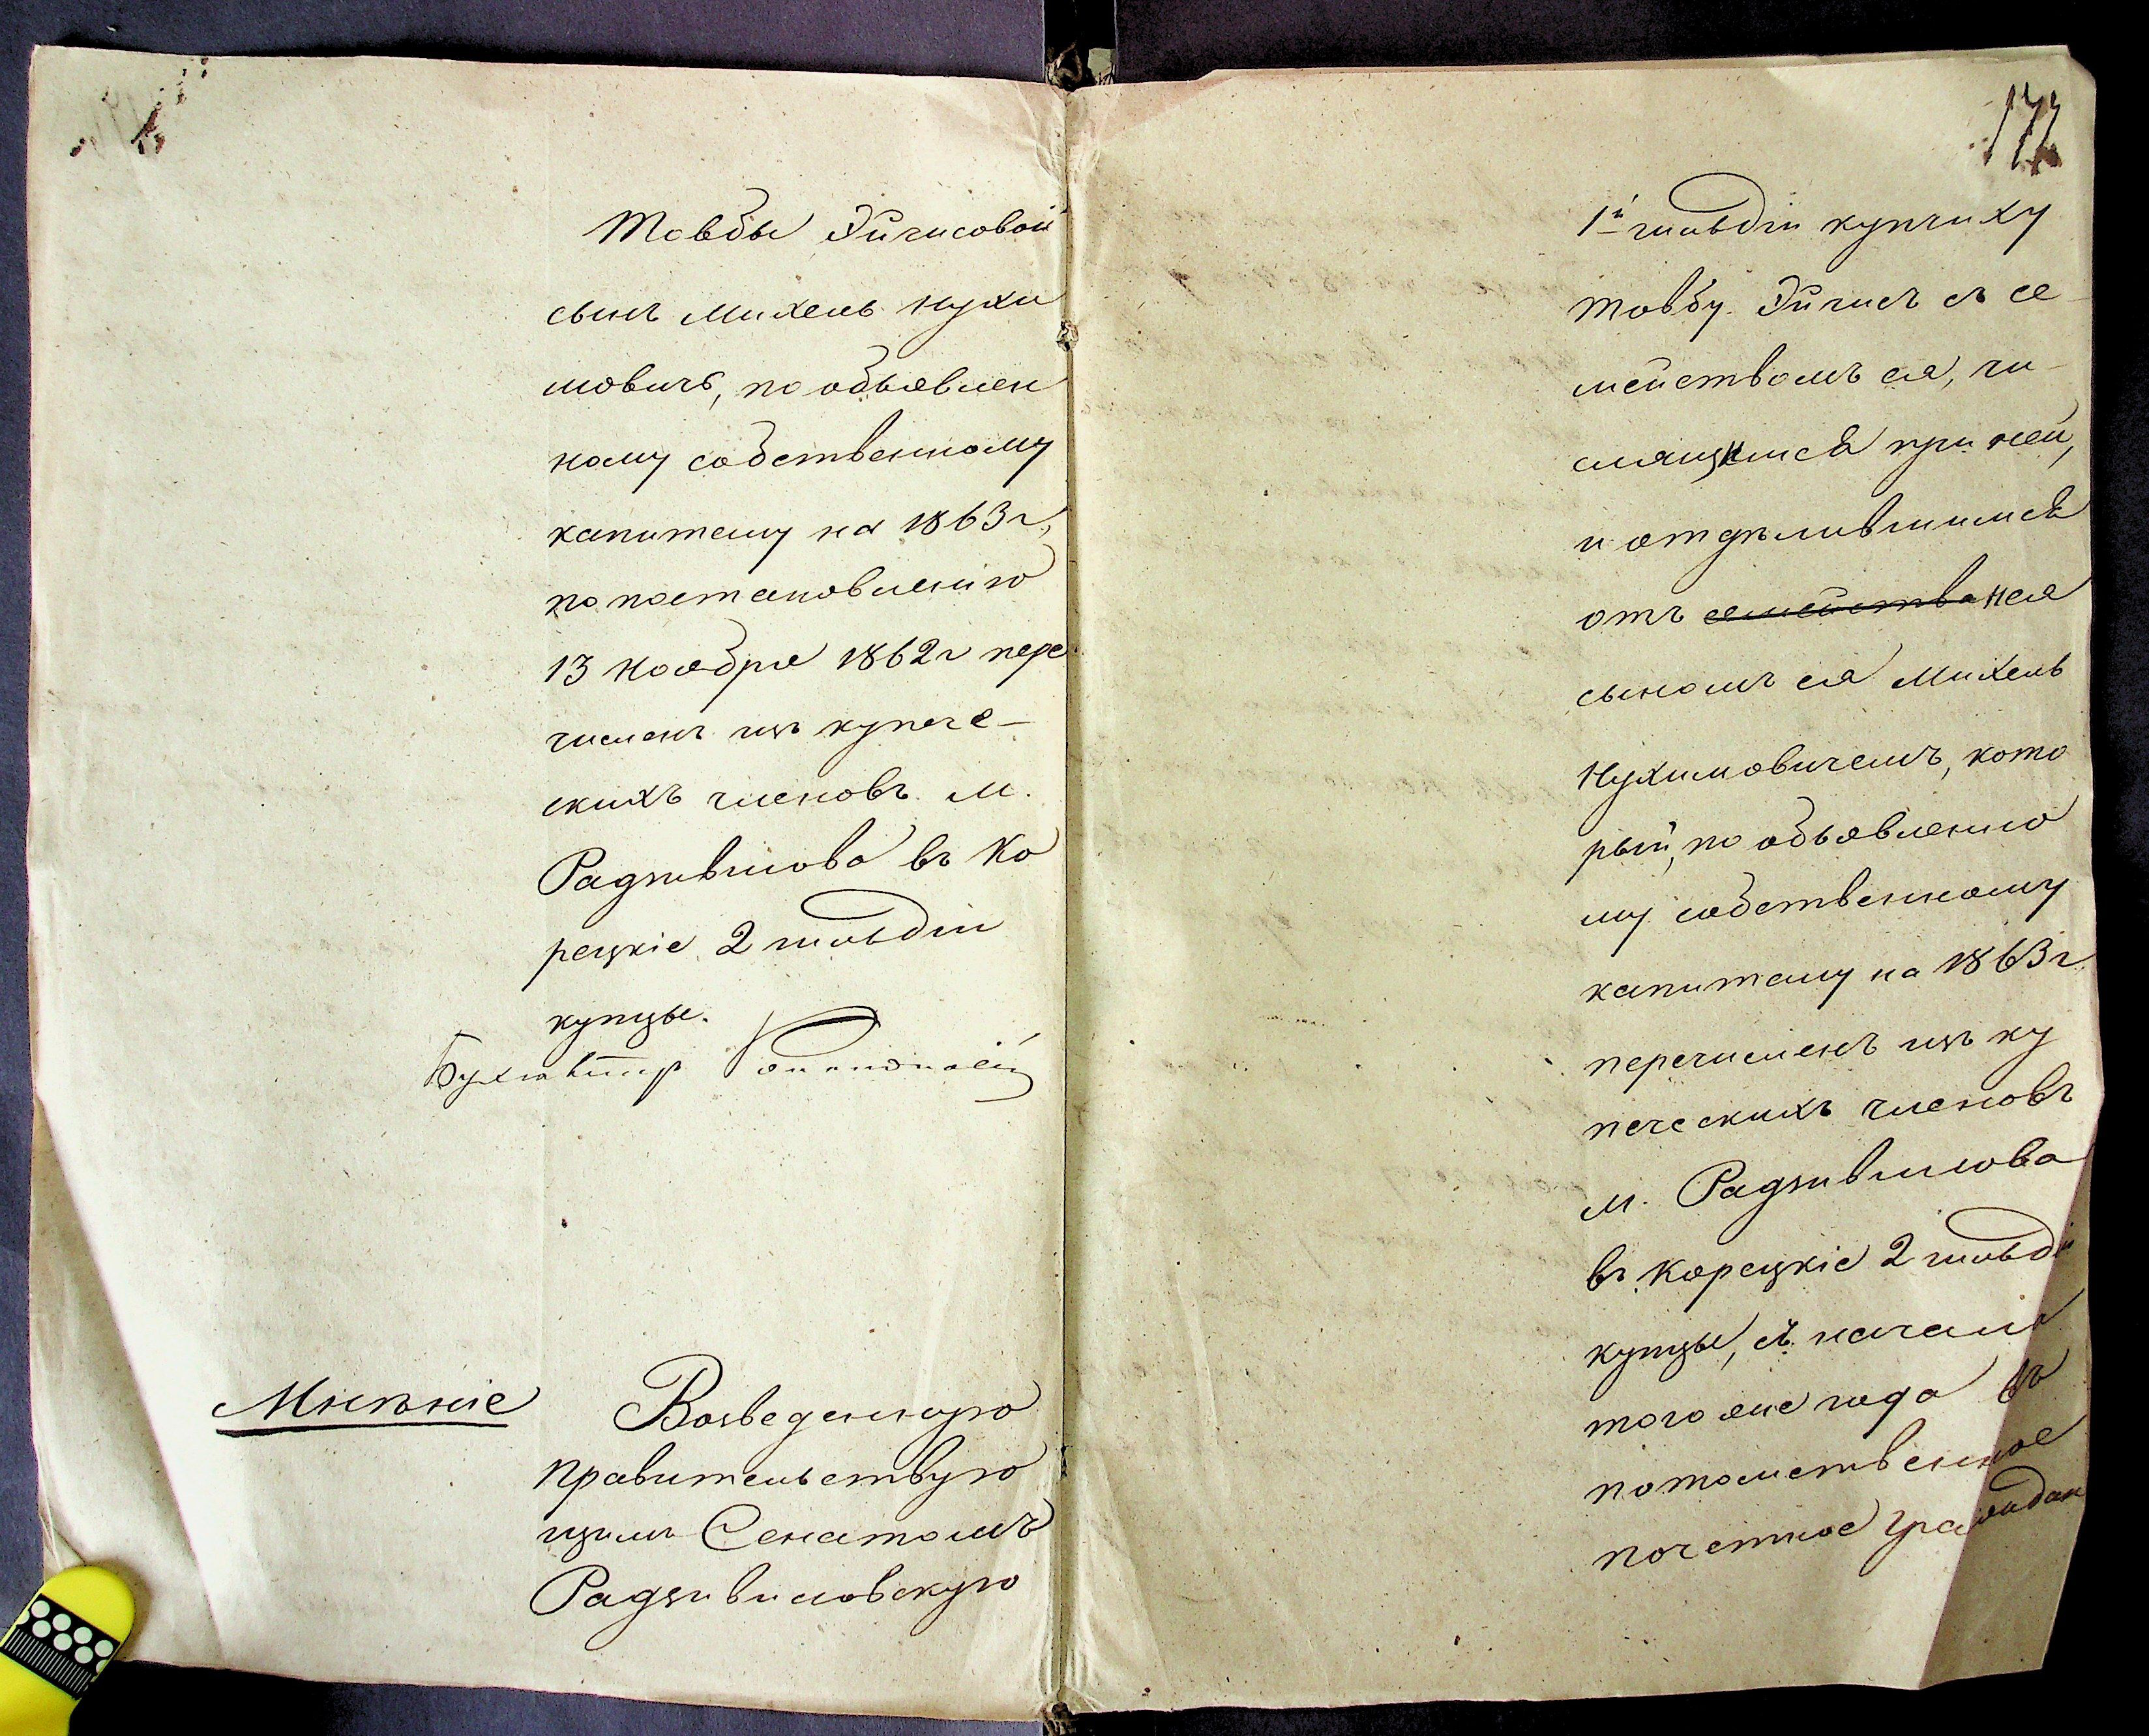 Товбы Эйгисовой
сынъ Михель Нухи
мовичъ, по объявлен
ному собственному
капиталу на 1863 г,
по постановленію
13 Ноября 1862 г пере
численъ изъ купече-
скихъ членовъ м.
Радзивилова въ Ко
рецкіе 2 гильдіи
купцы.
Бухгалтеръ
Мнѣніе
Возведенную
Правительствую
щимъ Сенатомъ
Радзивиловскую
177
1й гильдіи купчиху
Товбу Эйгисъ съ се-
мействомъ ея, чи-
слящимся при ней,
и отдѣлившимся
отъ семейства нея
сыномъ ея Михель
Нухимовичемъ, кото
рый, по объявленно
му собственному
капиталу на 1863 г.
перечисленъ изъ ку
печескихъ членовъ
м. Радзивилова
въ Корецкіе 2 гильдіи
купцы, съ начала
того же года въ
потомственное
почетное граждан